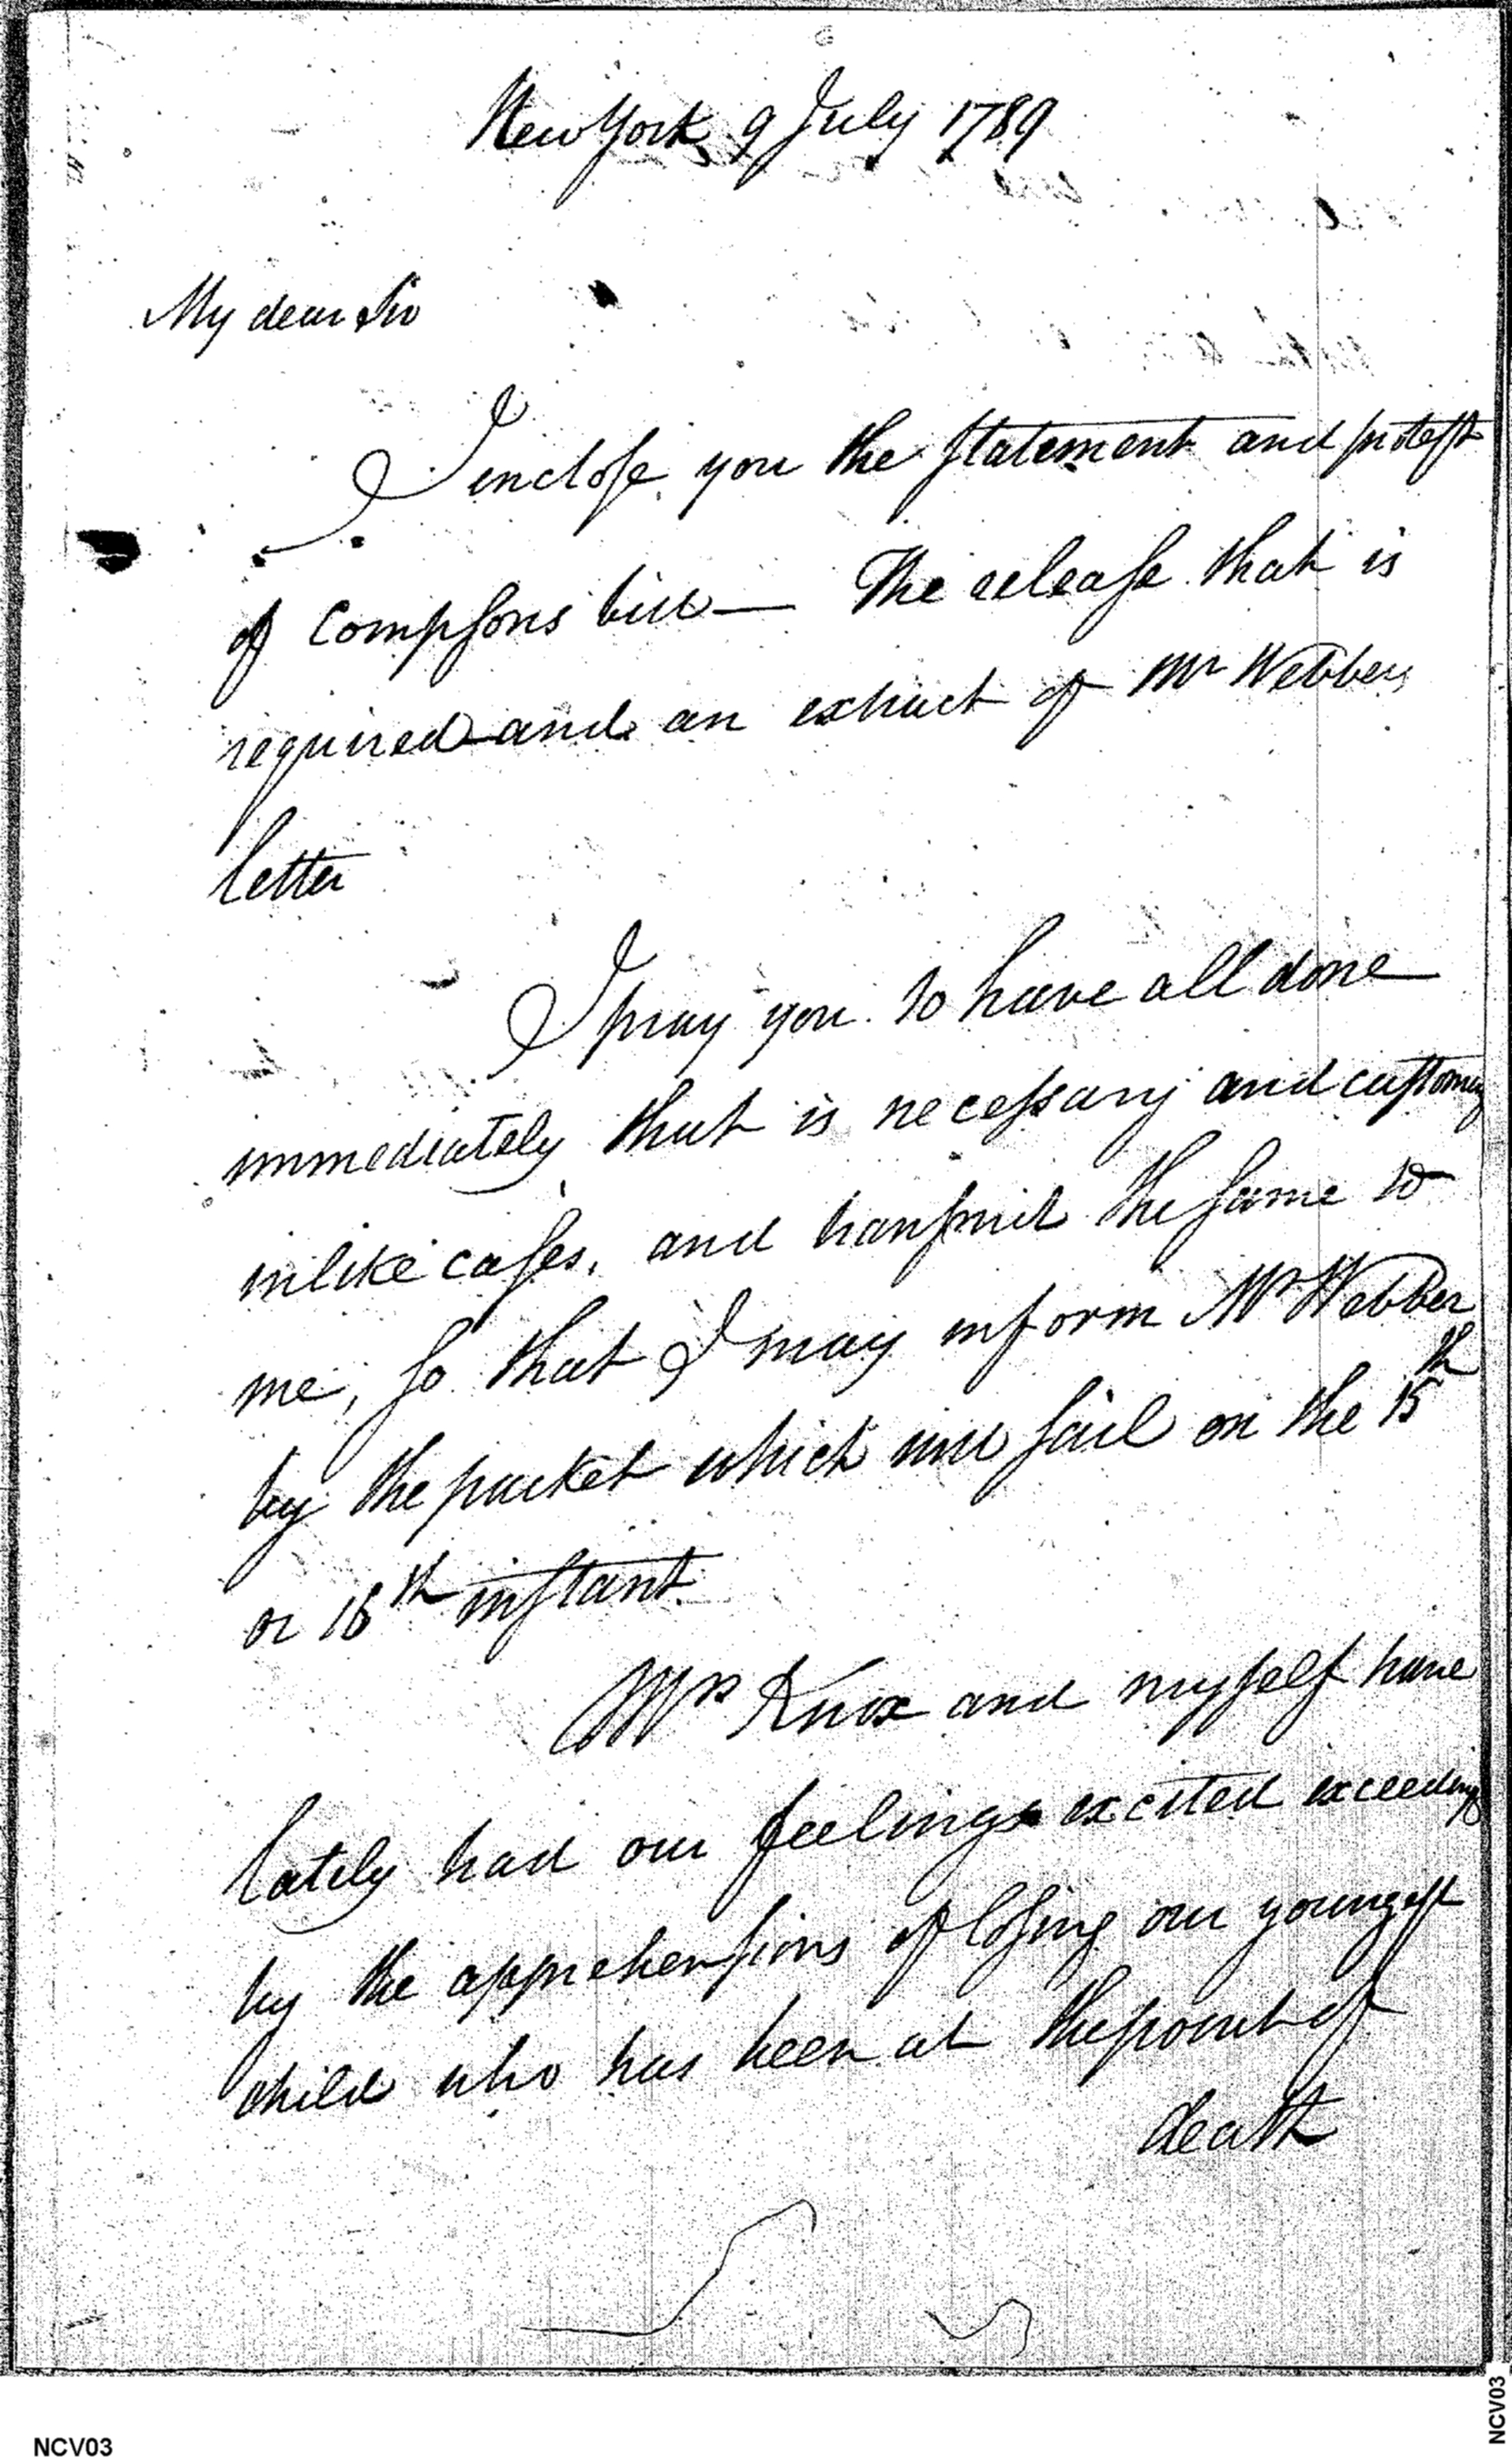 New York 9 July 1789
My dear Sir
I inclose you the statement and protest
of Compsons bill — The release that is
required and an extract of Mr Webbers
letter
I pray you to have all done
immediately that is necessary and customary
in like cases, and transmit the same to
me, so that I may inform Mr Webber
by the packet which will sail on the 15th
or 16th instant.
Mrs Knox and myself have
lately had our feelings excited exceedingly
by the apprehensions of losing our youngest
child who has been at the point of
death
NCV03
NCV03